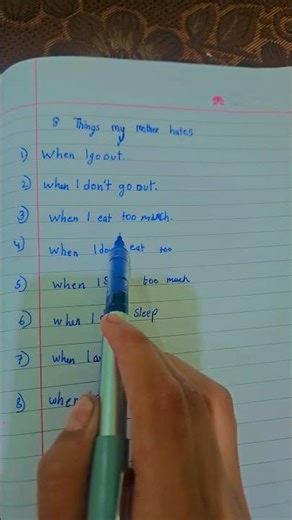 8 Things my mother hates
1) When I go out.
2) when I don't go out.
3) when I eat too much.
4) when I don eat too
5) when I S too much
6) when I sleep
7) when I a
8) when